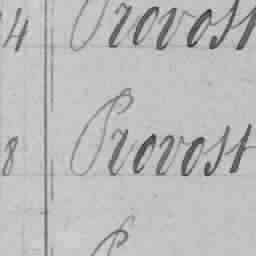 14 Provost
8 Provost